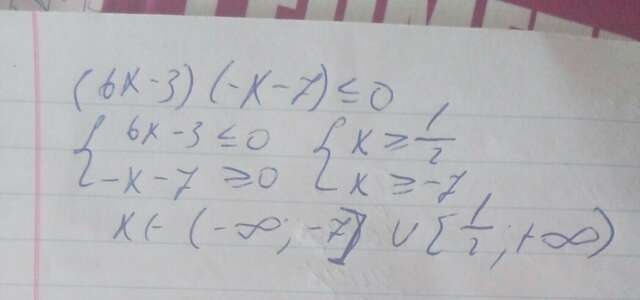 (6x-3)(-x-7)≤0
{ 6x-3≤0 { x≥1/2
{ -x-7≥0 { x≥-7
x∈(-∞;-7]∪[1/2;+∞)